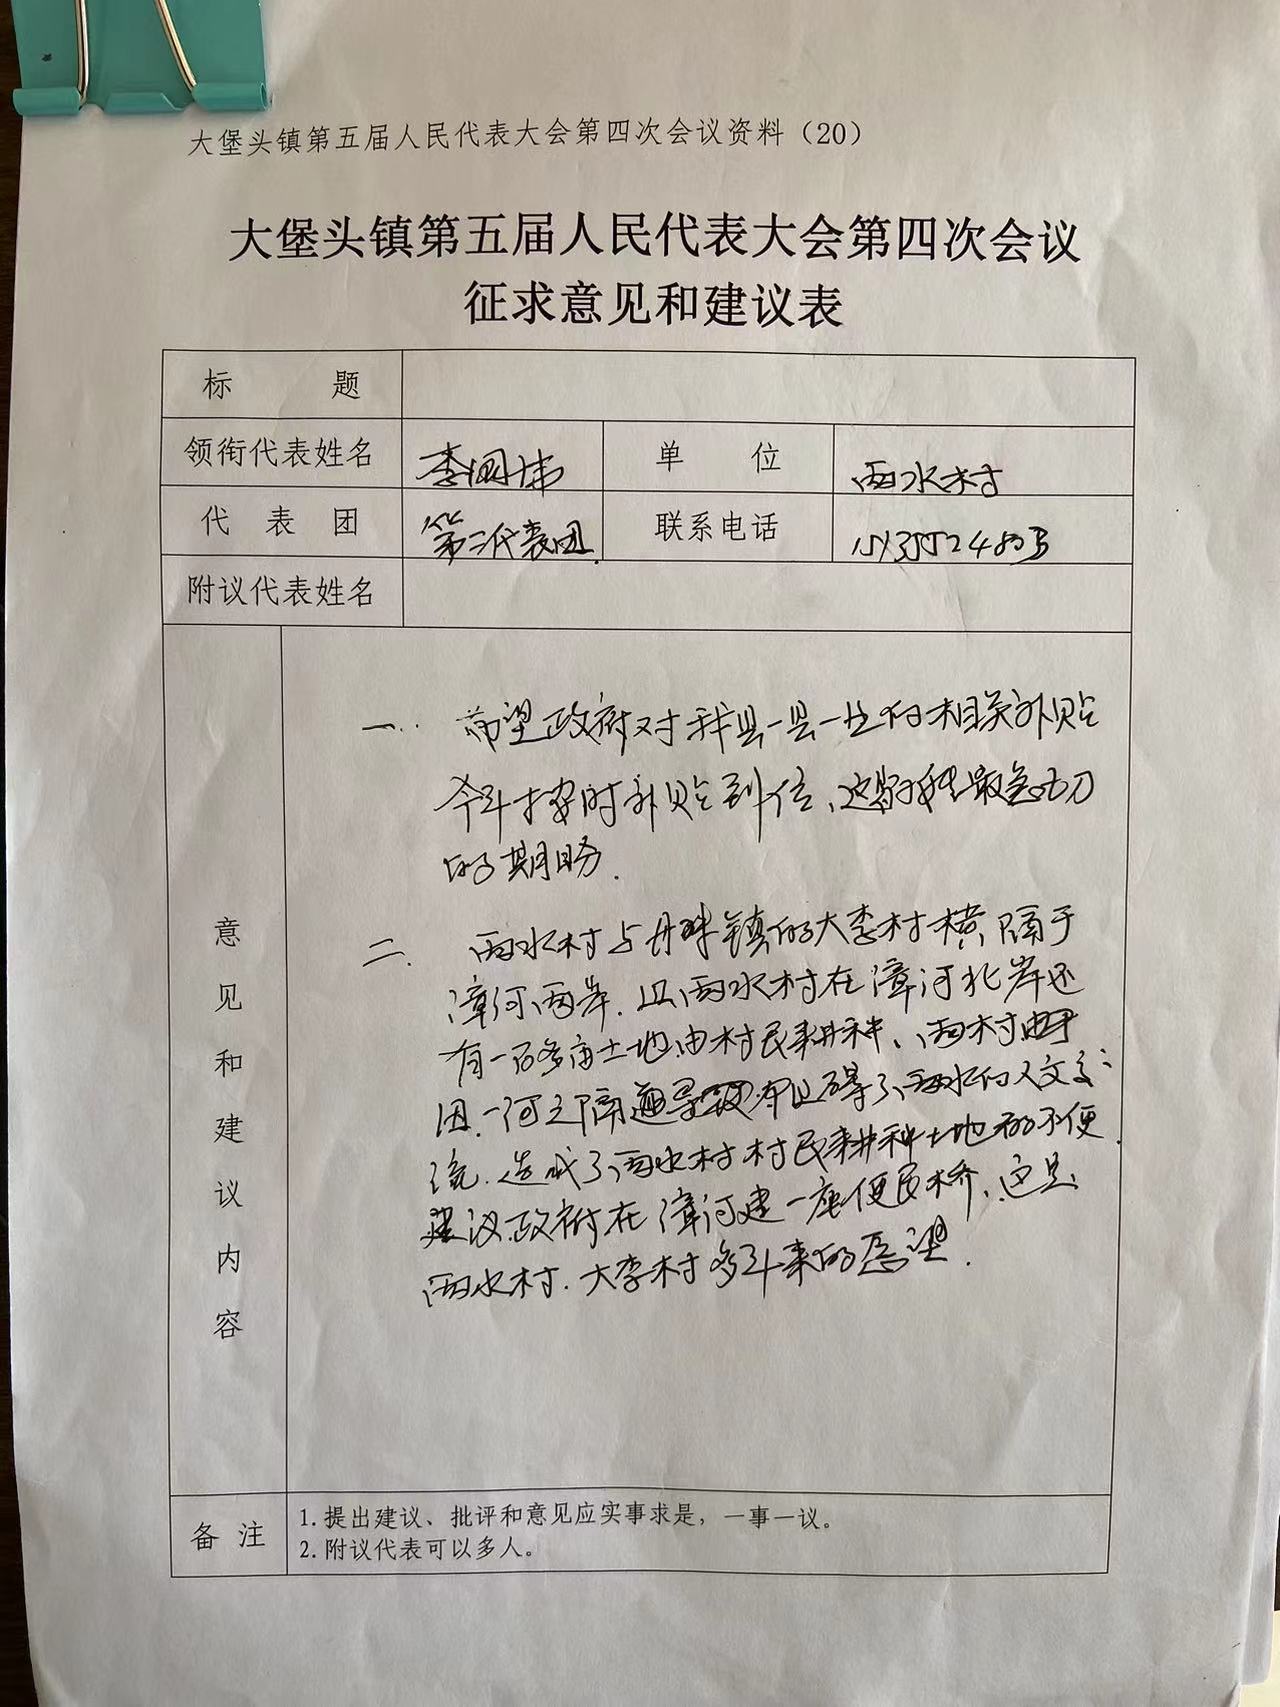 大堡头镇第五届人民代表大会第四次会议资料（20）
大堡头镇第五届人民代表大会第四次会议
征求意见和建议表
标 题
领衔代表姓名 李国 单 位 西水村
代 表 团 第二代表团 联系电话
附议代表姓名
意见和建议内容
一. 希望政府对我县一县一业的相关补贴
今年按时补贴到位、最急切
的期盼.
二. 西水村与丹珠镇的大李村横隔于
漳河两岸. 且西水村在漳河北岸还
有一百多亩土地由村民耕种、两村由于
因一河之隔 了西水的人文交
流. 造成了西水村村民耕种土地的不便.
建议政府在漳河建一座便民桥、这是
西水村. 大李村多年来的愿望.
备 注 1. 提出建议、批评和意见应实事求是，一事一议。
2. 附议代表可以多人。